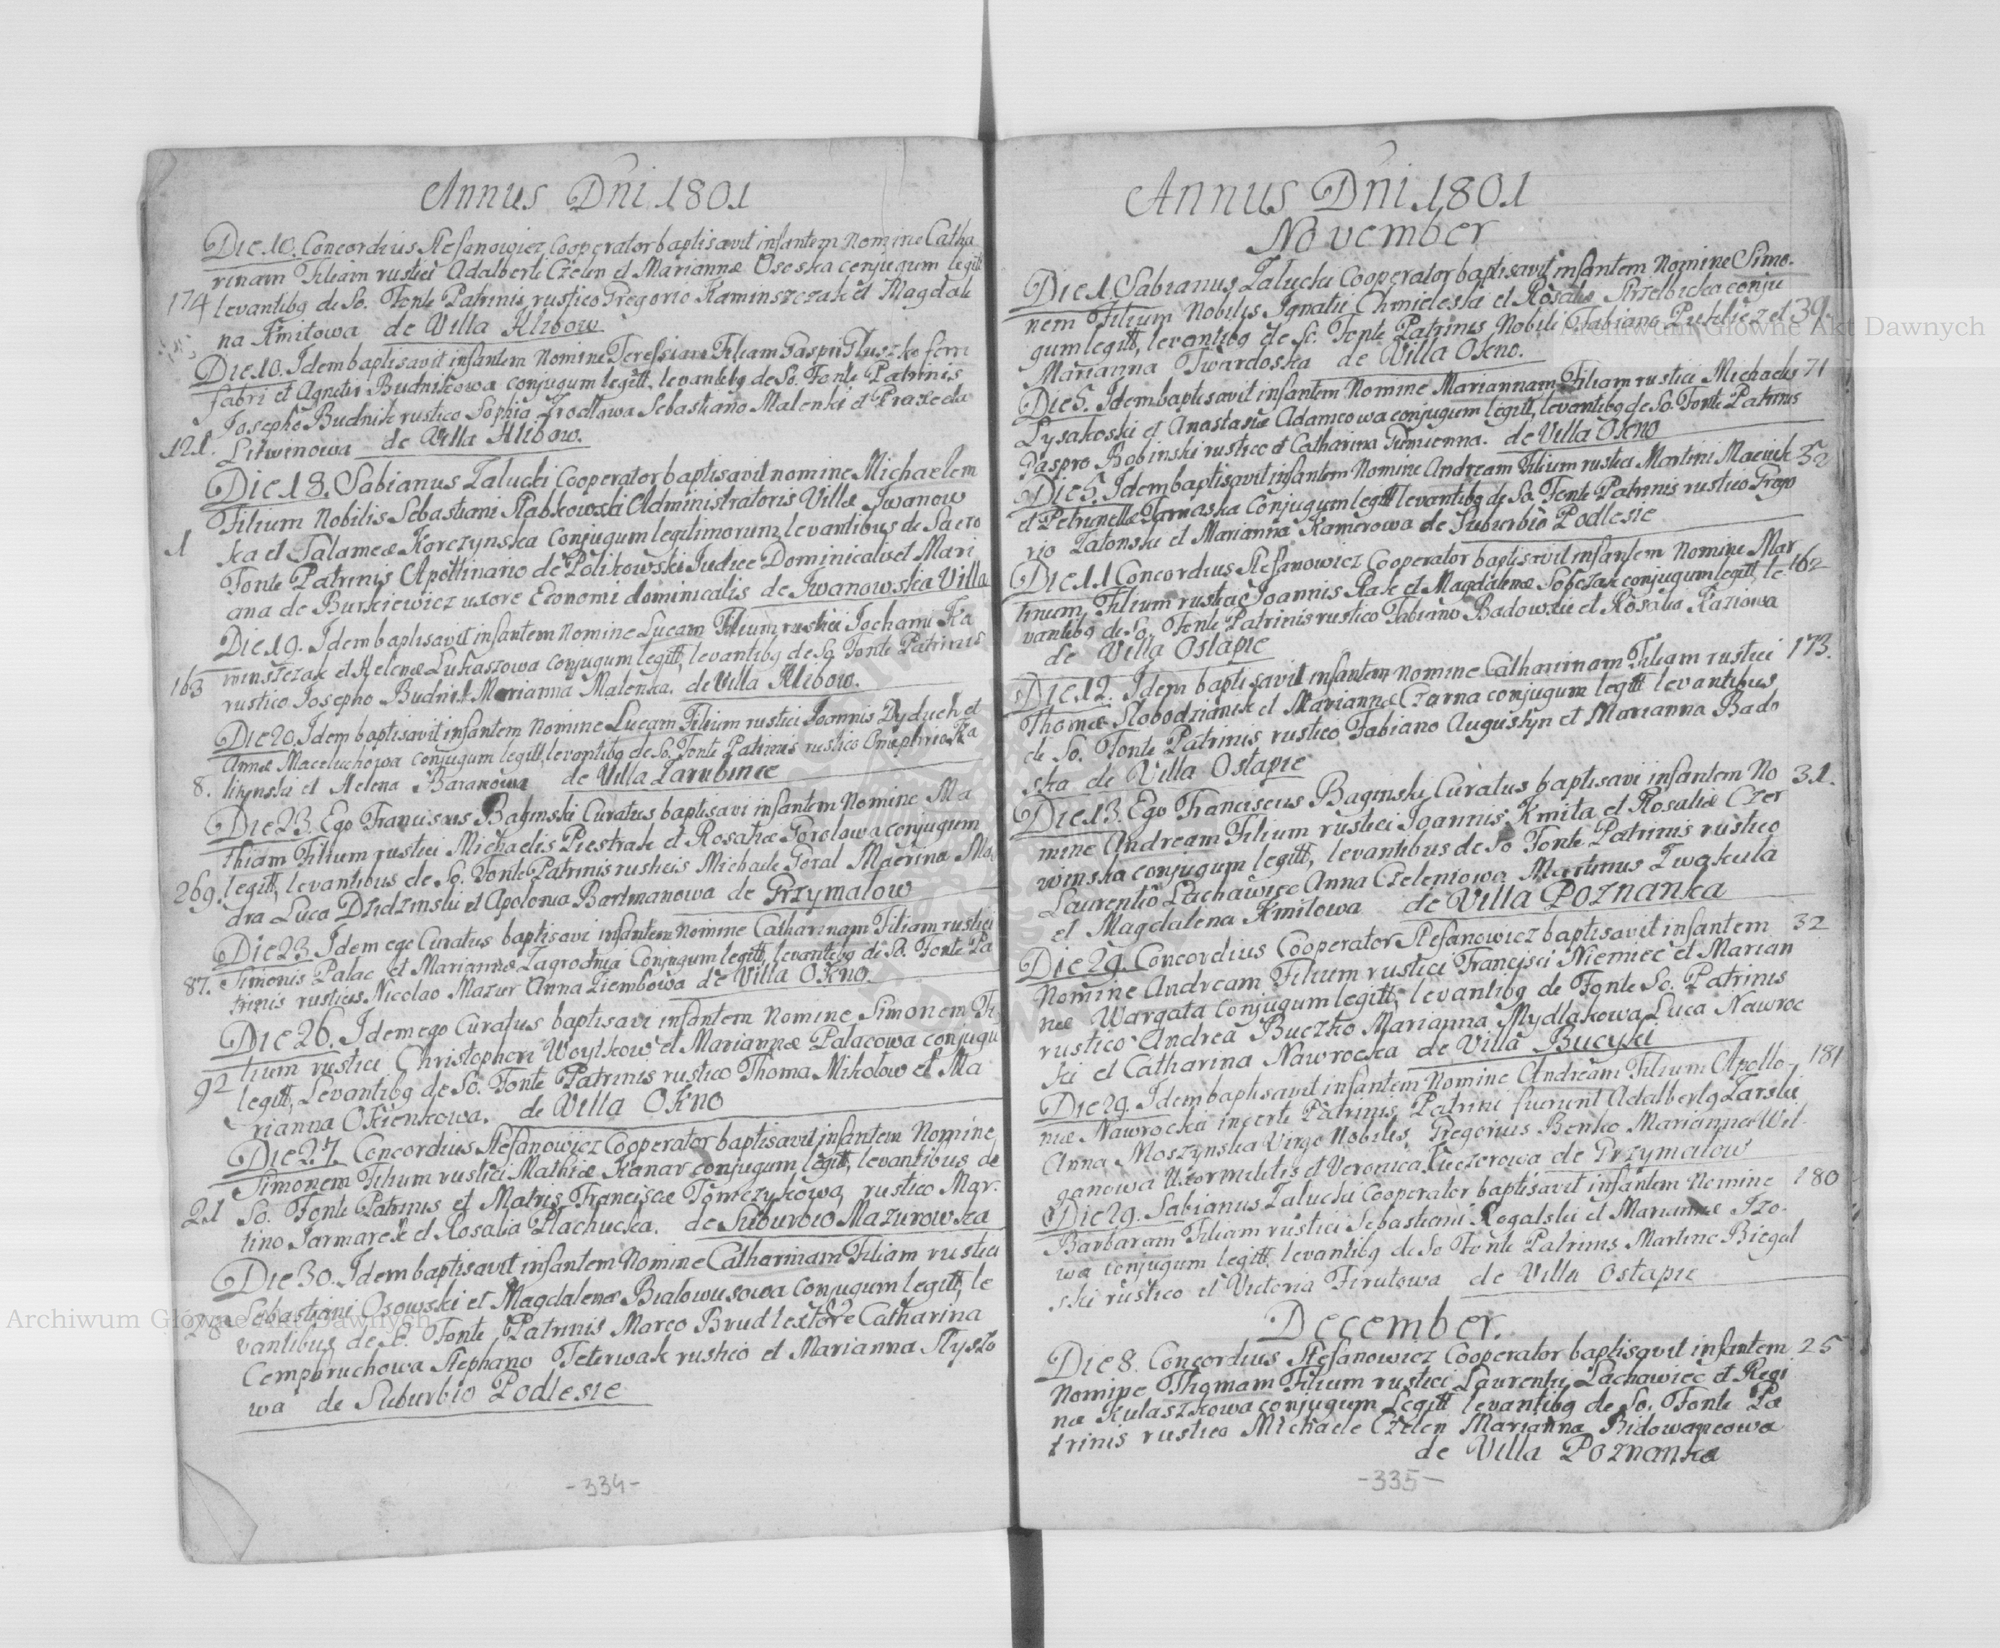 Annus Dni 1801
Die 10. Concordius Stefanowicz Cooperator baptisavit infantem Nomine Catha
rinam Filiam rustici Adalberti Czelen et MariannæOsoska conjugum legitt
174 levantibq de So. Fonte Patrinis rustico Gregorio Kaminszczak et Magdale
na Kmitowa de Villa Hlibow
Die 10. Idem baptisavit infantem Nomine Teressiam Filiam Gaspri Gluszko ferri
fabri et Agnetis Budnikowa conjugum legitt, levantibq de So. Fonte Patrinis
Josepho Budnik rustico Sophia Sebastiano Malenki et Praxeda
121. Litwinowa de Villa Hlibow.
Die 18. Sabianus Zalucki Cooperator baptisavit nomine Michaelem
Filium Nobilis Sebastiani Administratoris Villæ Iwanow
1 ka et Salameæ Korczynska Conjugum legitimorum, levantibus de Sacro
Fonte Patrinis Apollinario de Polikowski Judice Dominicali et Mari
ana de Burkiewicz uxore Economi dominicalis de Iwanowska Villa
Die 19. Idem baptisavit infantem Nomine Lucam Filium rustici Ka
163 minszczak et Helenæ Lukaszowa conjugum legitt, levantibq de So Fonte Patrinis
rustico Josepho Budnik Marianna Malenka. de Villa Hlibow.
Die 20. Idem baptisavit infantem Nomine Lucam Filium rustici Joannis Dyduch et
Annæ Maceluchowa conjugum legitt, levantibq de So. Fonte Patrinis rustico Onuphrio Ka
8. litynski et Helena Baranowa de Villa Zarubince
Die 23. Ego Franciscus Baginski Curatus baptisavi infantem Nomine Ma
thiam Filium rustici Michaelis Piestrak et Rosaliæ Gorolowa conjugum
269. legitt, levantibus de So. Fonte Patrinis rusticis Michaele Goral Maerina Ma
dra Luca Dzidzinski et Apolonia Bartmanowa de Grzymalow
Die 23. Idem ego Curatus baptisavi infantem Nomine Catharinam Filiam rustici
87. Simonis Palac et Mariannæ Zagrodnia Conjugum legitt, levantibq de S. Fonte Pa
trinis rusticis Nicolao Mazur Anna Ziembowa de Villa Okno.
Die 26. Idem ego Curatus baptisavi infantem Nomine Simonem Fi
lium rustici Christophori Woytkow et Mariannæ Palacowa conjugu
92 legitt, Levantibq de So. Fonte Patrinis rustico Thoma Mikolow et Ma
rianna Okienkowa. de Villa Okno
Die 27. Concordius Stefanowicz Cooperator baptisavit infantem Nomine
Simonem Filium rustici Mathiæ Kanar conjugum legitt, levantibus de
21 So. Fonte Patrinis et Matris Franciscæ Tomczykowa rustico Mar-
tino Jarmarek et Rosalia Plachucka. de Suburbio Mazurowka
Die 30. Idem baptisavit infantem Nomine Catharinam Filiam rustici
Sebastiani Osowski et Magdalenæ Bialowusowa Conjugum legitt, le
28 vantibus de S. Fonte Patrinis Marco Catharina
Cempbruchowa Stephano Teterwak rustico et Marianna Styslo
wa de Suburbio Podlesie
-334-
Annus Dni 1801
November
Die 1. Sabianus Zalucki Cooperator baptisavit infantem Nomine Simo-
nem Filium Nobilis Ignatii Chmieleski et Rosaliæ Strzelbicka conju
gum legitt, levantibq de So. Fonte Patrinis Nobili Fabiano et 39.
Marianna Twardoska de Villa Okno.
Die 5. Idem baptisavit infantem Nomine Mariannam Filiam rustici Michaelis 71
Lysakoski et Anastasiæ Adamcowa conjugum legitt, levantibq de So. Fonte Patrinis
Gaspro Bobinski rustico et Catharina Gumienna. de Villa Okno
Die 5. Idem baptisavit infantem Nomine Andream Filium rustici Martini Maciek 32
et Petrunellæ Tarnaska Conjugum legitt levantibq de So. Fonte Patrinis rustico Grego
rio Zatonski et Marianna Kamerowa de Suburbio Podlesie
Die 11 Concordius Stefanowicz Cooperator baptisavit infantem Nomine Mar 162
tinum Filium rusticæ Joannis Rak et Magdalenæ Sobczak conjugum legitt, le
vantibq de So. Fonte Patrinis rustico Fabiano Badowski et Rosalia Kaziowa
de Villa Ostapie
Die 12. Idem baptisavit infantem nomine Catharinam Filiam rustici 173.
Thomæ Slobodzianik et Mariannæ Czarna conjugum legitt levantibus
de So. Fonte Patrinis rustico Fabiano Augustyn et Marianna Bado
ska de Villa Ostapie
Die 13. Ego Franciscus Baginski Curatus baptisavi infantem No 31.
mine Andream Filium rustici Joannis Kmita et Rosaliæ Czer
winska conjugum legitt, levantibus de So Fonte Patrinis rustico
Laurentio Lachawiec Anna Czeleniowa Martinus Zwakula
et Magdalena Kmitowa de Villa Poznanka
Die 29. Concordius Cooperator Stefanowicz baptisavit infantem 32
Nomine Andream Filium rustici Francisci Niemiec et Marian
næ Wargata Conjugum legitt, levantibq de Fonte So. Patrinis
rustico Andrea Buczko Marianna Mydlakowa Luca Nawroc
ki et Catharina Nawrocka de Villa Bucyki
Die 29. Idem baptisavit infantem Nomine Andream Filium Apollo- 181
niæ Nawrocka incerti Patrinis, Patrini fuerunt Adalbertq Zarski
Anna Moszynska Virgo Nobilis, Gregorius Benko Marianna Wil-
ganowa Uxor militis et Veronica Kuczerowa de Grzymalow
Die 29. Sabianus Zalucki Cooperator baptisavit infantem Nomine 180
Barbaram Filiam rustici Sebastiani Rogalski et Mariannæ Izo-
wa conjugum legitt, levantibq de So Fonte Patrinis Martino Biegal
ski rustico et Victoria Firutowa de Villa Ostapie
December.
Die 8. Concordius Stefanowicz Cooperator baptisavit infantem 25
Nomine Thomam Filium rustici Laurentii Lachawiec et Regi
næ Kulaszkowa conjugum Legitt levantibq de So. Fonte Pa
trinis rustico Michaele Czelen Marianna Bidowancowa
de Villa Poznanka
-335-
Archiwum Główne Akt Dawnych
Archiwum Główne Akt Dawnych